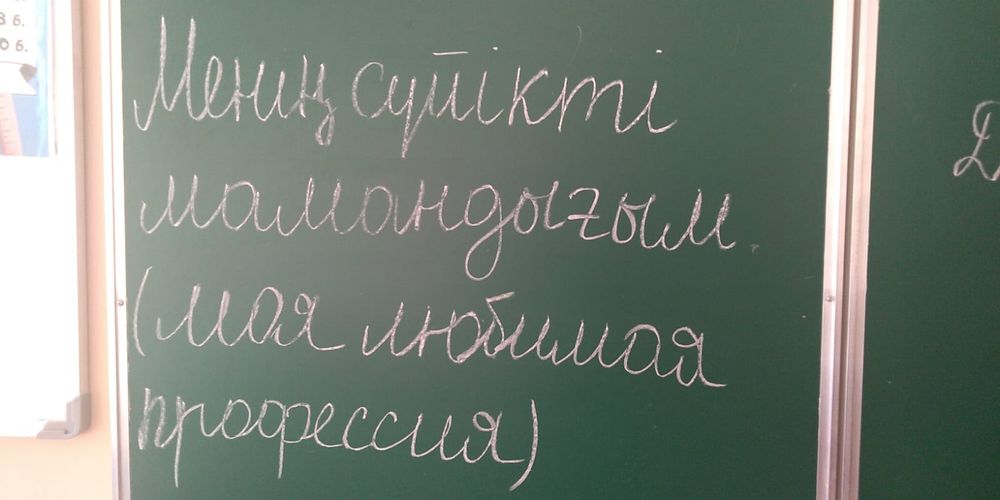 Менің сүйікті
мамандығым.
(моя любимая
профессия)